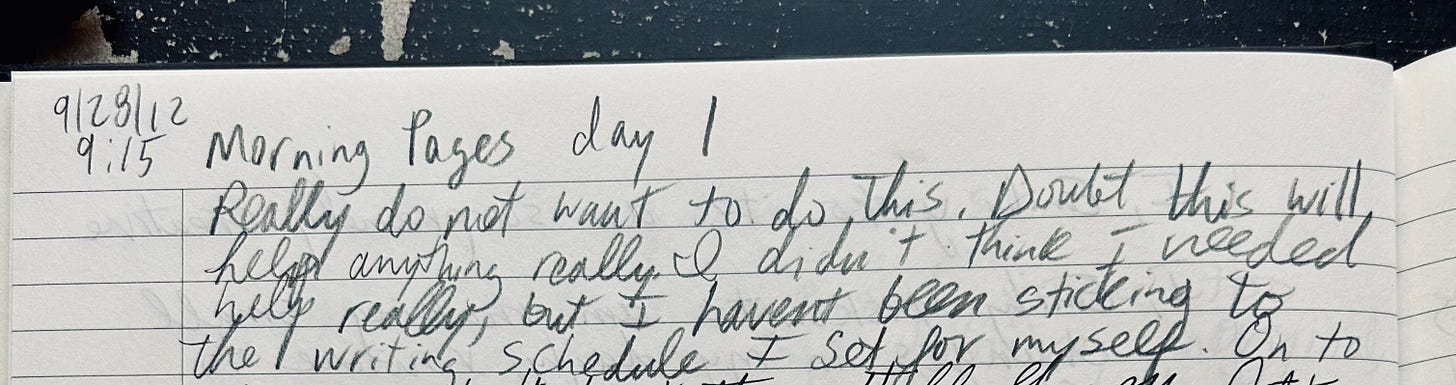 9/28/12
9:15 Morning Pages day 1
Really do not want to do this. Doubt this will
help anything really. I didn't think I needed
help really, but I havent been sticking to
the writing schedule I set for myself. On to